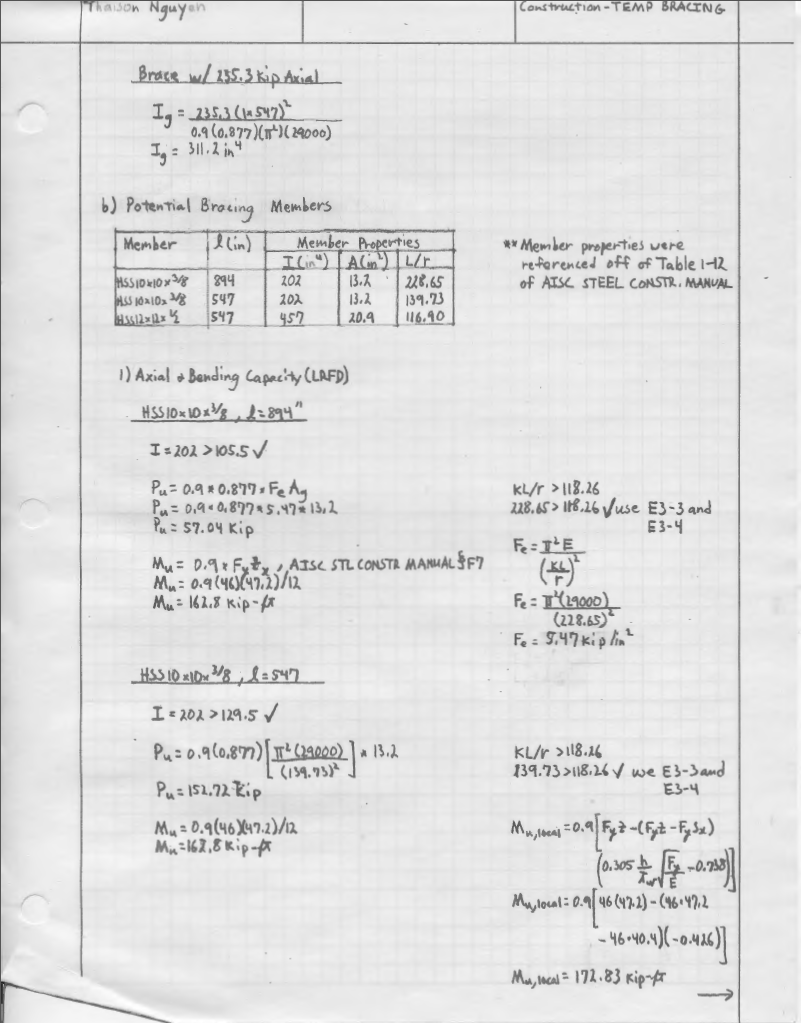 Thaison Nguyen
Construction-TEMP BRACING
Brace w/ 235.3 Kip Axial
Ig = 235.3(1*547)²
0.9(0.877)(π²)(29000)
Ig = 311.2 in⁴
b) Potential Bracing Members
Member l(in) Member Properties
I(in⁴) A(in²) L/r
HSS10x10x3/8 894 202 13.2 228.65
HSS10x10x3/8 547 202 13.2 139.73
HSS12x12x1/2 547 457 20.9 116.90
** Member properties were
referenced off of Table 1-12
of AISC STEEL CONSTR. MANUAL
1) Axial + Bending Capacity (LRFD)
HSS10x10x3/8, l=894"
I=202 >105.5 ✓
Pu = 0.9 * 0.877 * Fe Ag
Pu = 0.9 * 0.877 * 5.47 * 13.2
Pu = 57.04 Kip
Mu = 0.9 * Fy Zx, AISC STL CONSTR MANUAL §F7
Mu = 0.9(46)(47.2)/12
Mu = 162.8 Kip-ft
KL/r >118.26
228.65>118.26 ✓ use E3-3 and
E3-4
Fe = π²E
(KL/r)²
Fe = π²(29000)
(228.65)²
Fe = 5.47 Kip/in²
HSS10x10x3/8, l=547
I = 202 >129.5 ✓
Pu = 0.9(0.877)[π²(29000)/(139.73)²] * 13.2
Pu = 152.72 Kip
Mu = 0.9(46)(47.2)/12
Mu = 162.8 Kip-ft
KL/r >118.26
139.73>118.26 ✓ use E3-3 and
E3-4
Mu,local = 0.9[FyZ-(FyZ-FySx)
(0.305 h/tw √Fy/E -0.738)]
Mu,local = 0.9[46(47.2)-(46*47.2
-46*40.4)(-0.426)]
Mu,local = 172.83 Kip-ft
→